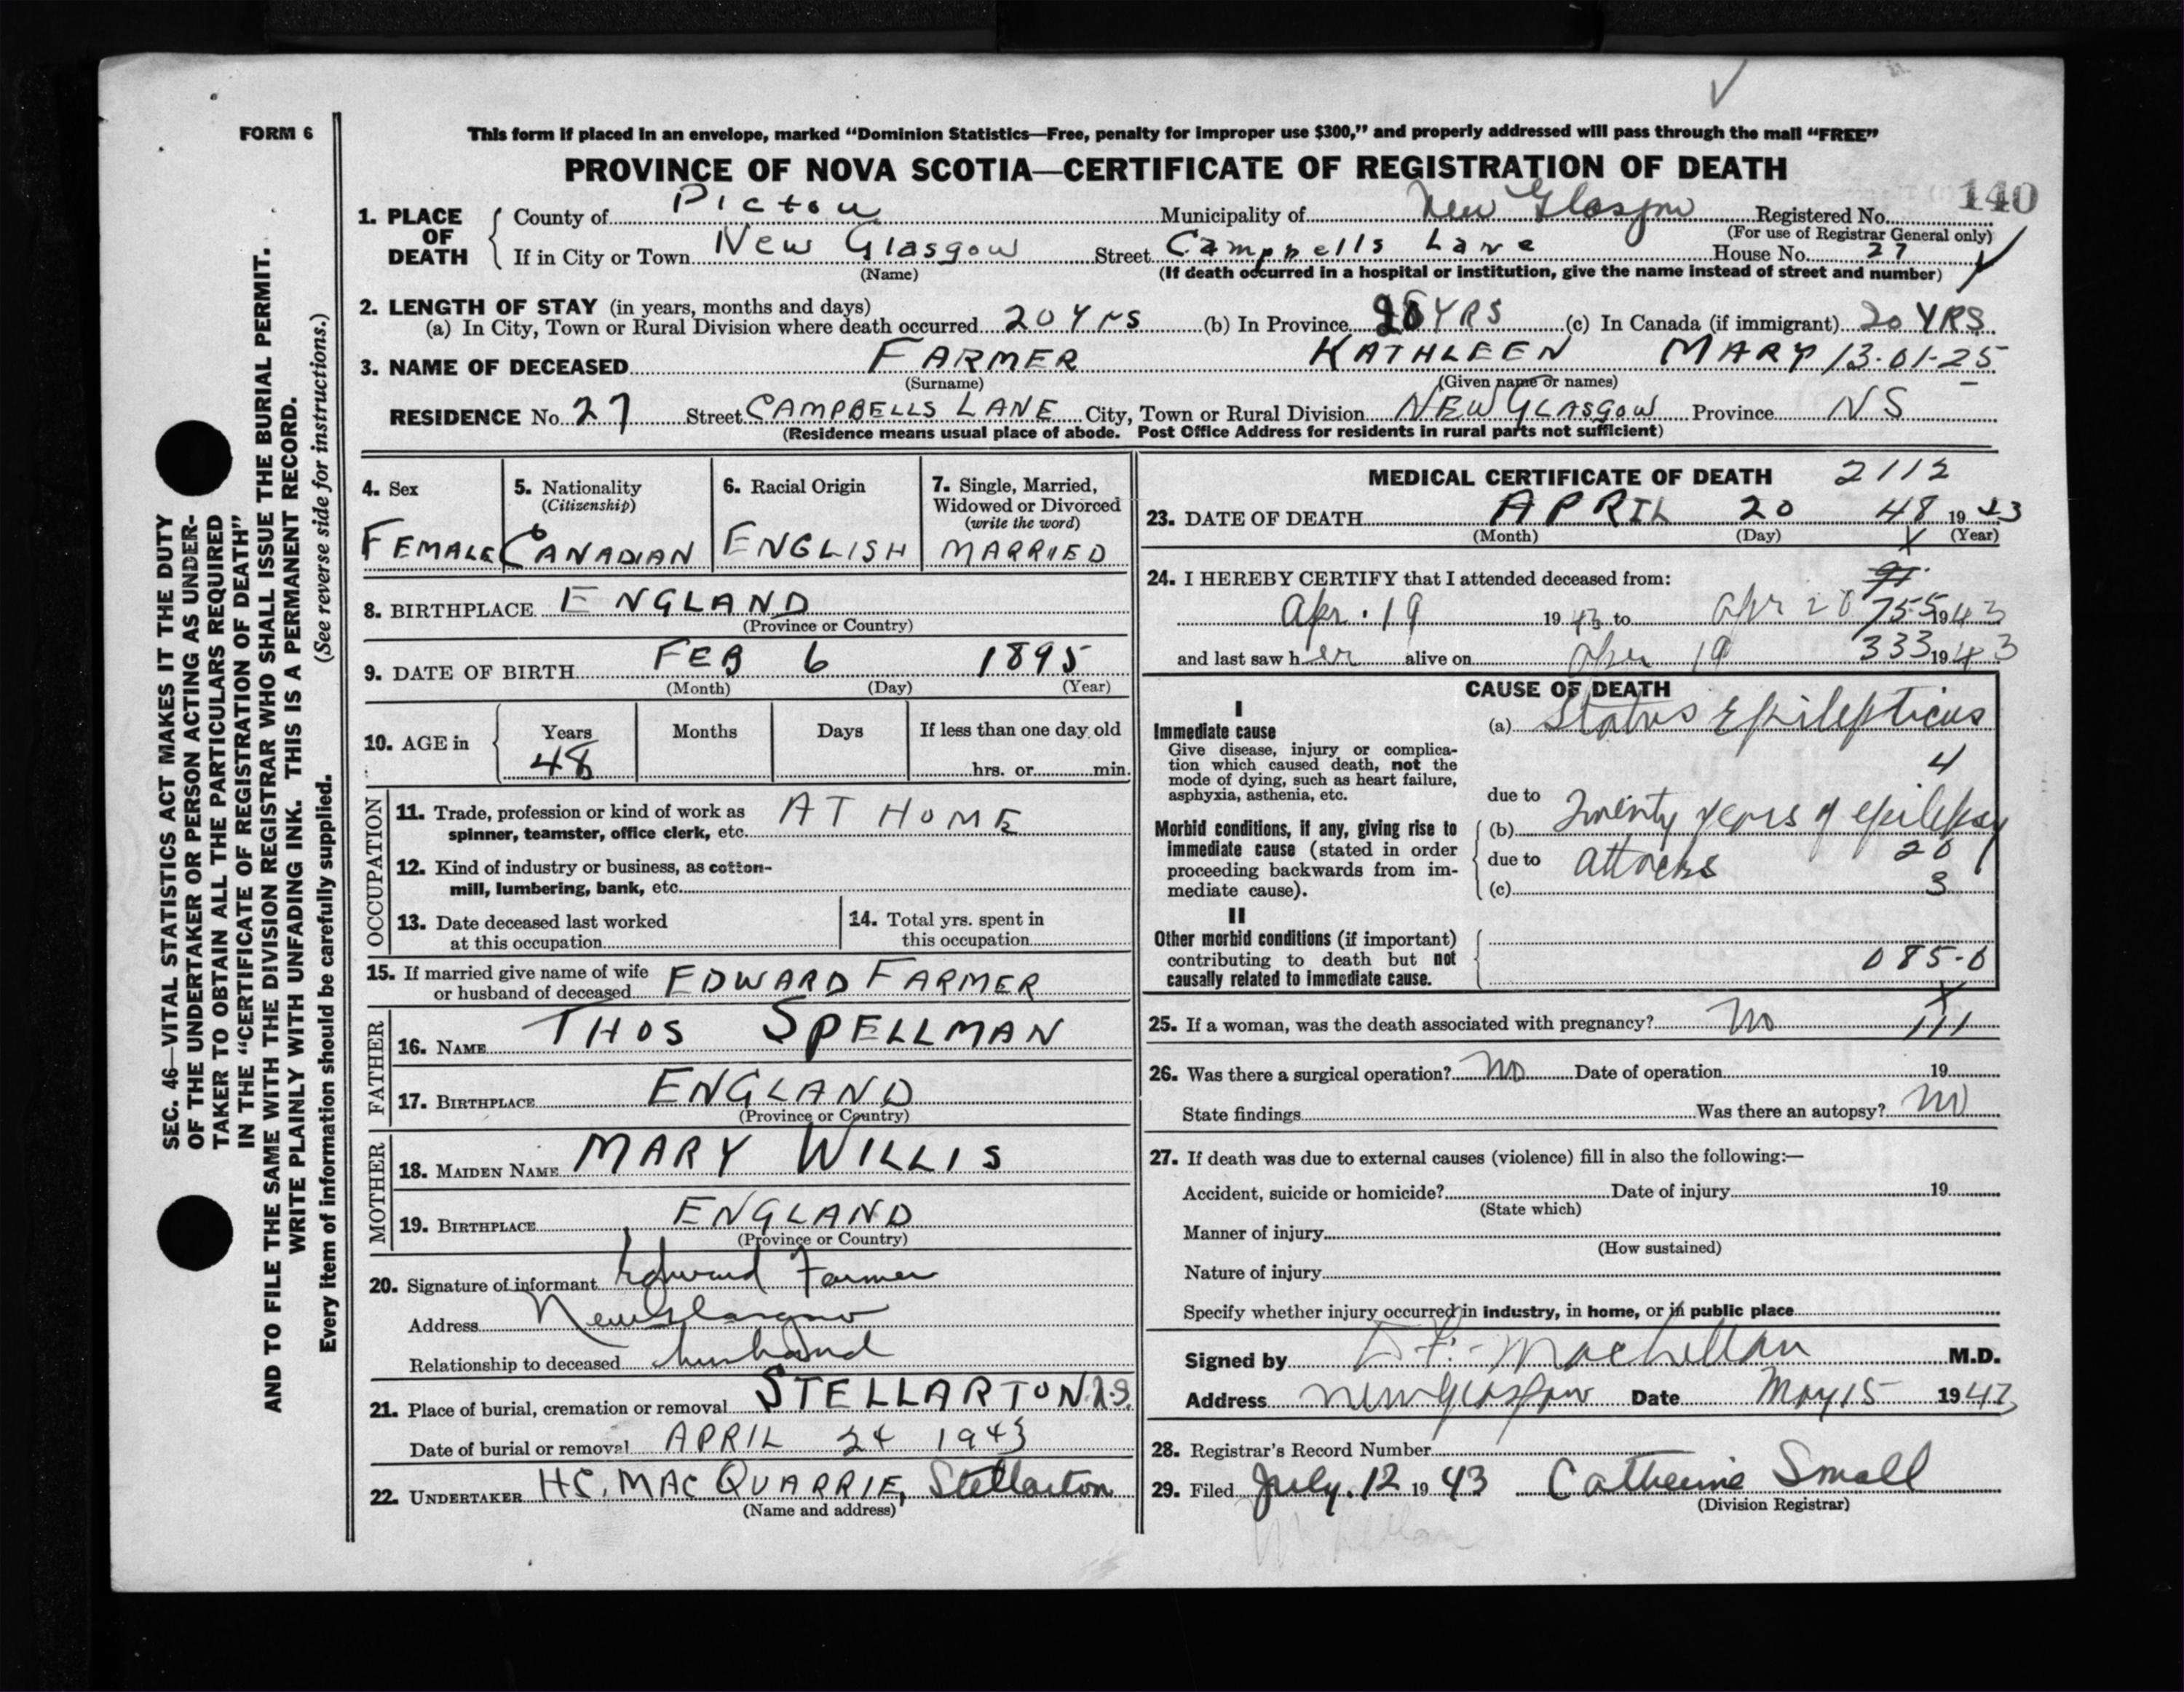 FORM 6
This form if placed in an envelope, marked “Dominion Statistics—Free, penalty for improper use $300,” and properly addressed will pass through the mail “FREE”
PROVINCE OF NOVA SCOTIA—CERTIFICATE OF REGISTRATION OF DEATH
140
1. PLACE OF DEATH { County of Pictou Municipality of New Glasgow Registered No.
(For use of Registrar General only)
If in City or Town New Glasgow Street Campbells Lane House No. 27
(Name) (If death occurred in a hospital or institution, give the name instead of street and number)
2. LENGTH OF STAY (in years, months and days)
(a) In City, Town or Rural Division where death occurred 20 Yrs (b) In Province 20 YRS (c) In Canada (if immigrant) 20 YRS
3. NAME OF DECEASED FARMER KATHLEEN MARY 13-01-25
(Surname) (Given name or names)
RESIDENCE No. 27 Street CAMPBELLS LANE City, Town or Rural Division NEW GLASGOW Province NS
(Residence means usual place of abode. Post Office Address for residents in rural parts not sufficient)
4. Sex
FEMALE
5. Nationality
(Citizenship)
CANADIAN
6. Racial Origin
ENGLISH
7. Single, Married,
Widowed or Divorced
(write the word)
MARRIED
8. BIRTHPLACE ENGLAND
(Province or Country)
9. DATE OF BIRTH FEB 6 1895
(Month) (Day) (Year)
10. AGE in { Years Months Days If less than one day old
48 hrs. or min.
OCCUPATION
11. Trade, profession or kind of work as
spinner, teamster, office clerk, etc. AT HOME
12. Kind of industry or business, as cotton-
mill, lumbering, bank, etc.
13. Date deceased last worked
at this occupation
14. Total yrs. spent in
this occupation
15. If married give name of wife
or husband of deceased EDWARD FARMER
FATHER
16. NAME THOS SPELLMAN
17. BIRTHPLACE ENGLAND
(Province or Country)
MOTHER
18. MAIDEN NAME MARY WILLIS
19. BIRTHPLACE ENGLAND
(Province or Country)
20. Signature of informant Edward Farmer
Address New Glasgow
Relationship to deceased husband
21. Place of burial, cremation or removal STELLARTON N.S.
Date of burial or removal APRIL 24 1943
22. UNDERTAKER H.C. MACQUARRIE, Stellarton
(Name and address)
MEDICAL CERTIFICATE OF DEATH 2112
23. DATE OF DEATH APRIL 20 48 1943
(Month) (Day) (Year)
24. I HEREBY CERTIFY that I attended deceased from:
Apr. 19 1943 to Apr 20 755 1943
and last saw her alive on Apr 19 333 1943
CAUSE OF DEATH
I
Immediate cause
Give disease, injury or complica-
tion which caused death, not the
mode of dying, such as heart failure,
asphyxia, asthenia, etc.
(a) Status Epilepticus
4
due to
Morbid conditions, if any, giving rise to
immediate cause (stated in order
proceeding backwards from im-
mediate cause).
(b) Twenty years of epilepsy
due to attacks 20
(c) 3
II
Other morbid conditions (if important)
contributing to death but not
causally related to immediate cause.
085-0
25. If a woman, was the death associated with pregnancy? No 111
26. Was there a surgical operation? No Date of operation 19
State findings Was there an autopsy? No
27. If death was due to external causes (violence) fill in also the following:—
Accident, suicide or homicide? Date of injury 19
(State which)
Manner of injury
(How sustained)
Nature of injury
Specify whether injury occurred in industry, in home, or in public place
Signed by D F. MacLellan M.D.
Address New Glasgow Date May 15 1943
28. Registrar’s Record Number
29. Filed July. 12 1943 Catherine Small
(Division Registrar)
SEC. 46—VITAL STATISTICS ACT MAKES IT THE DUTY
OF THE UNDERTAKER OR PERSON ACTING AS UNDER-
TAKER TO OBTAIN ALL THE PARTICULARS REQUIRED
IN THE “CERTIFICATE OF REGISTRATION OF DEATH”
AND TO FILE THE SAME WITH THE DIVISION REGISTRAR WHO SHALL ISSUE THE BURIAL PERMIT.
WRITE PLAINLY WITH UNFADING INK. THIS IS A PERMANENT RECORD.
Every item of information should be carefully supplied. (See reverse side for instructions.)